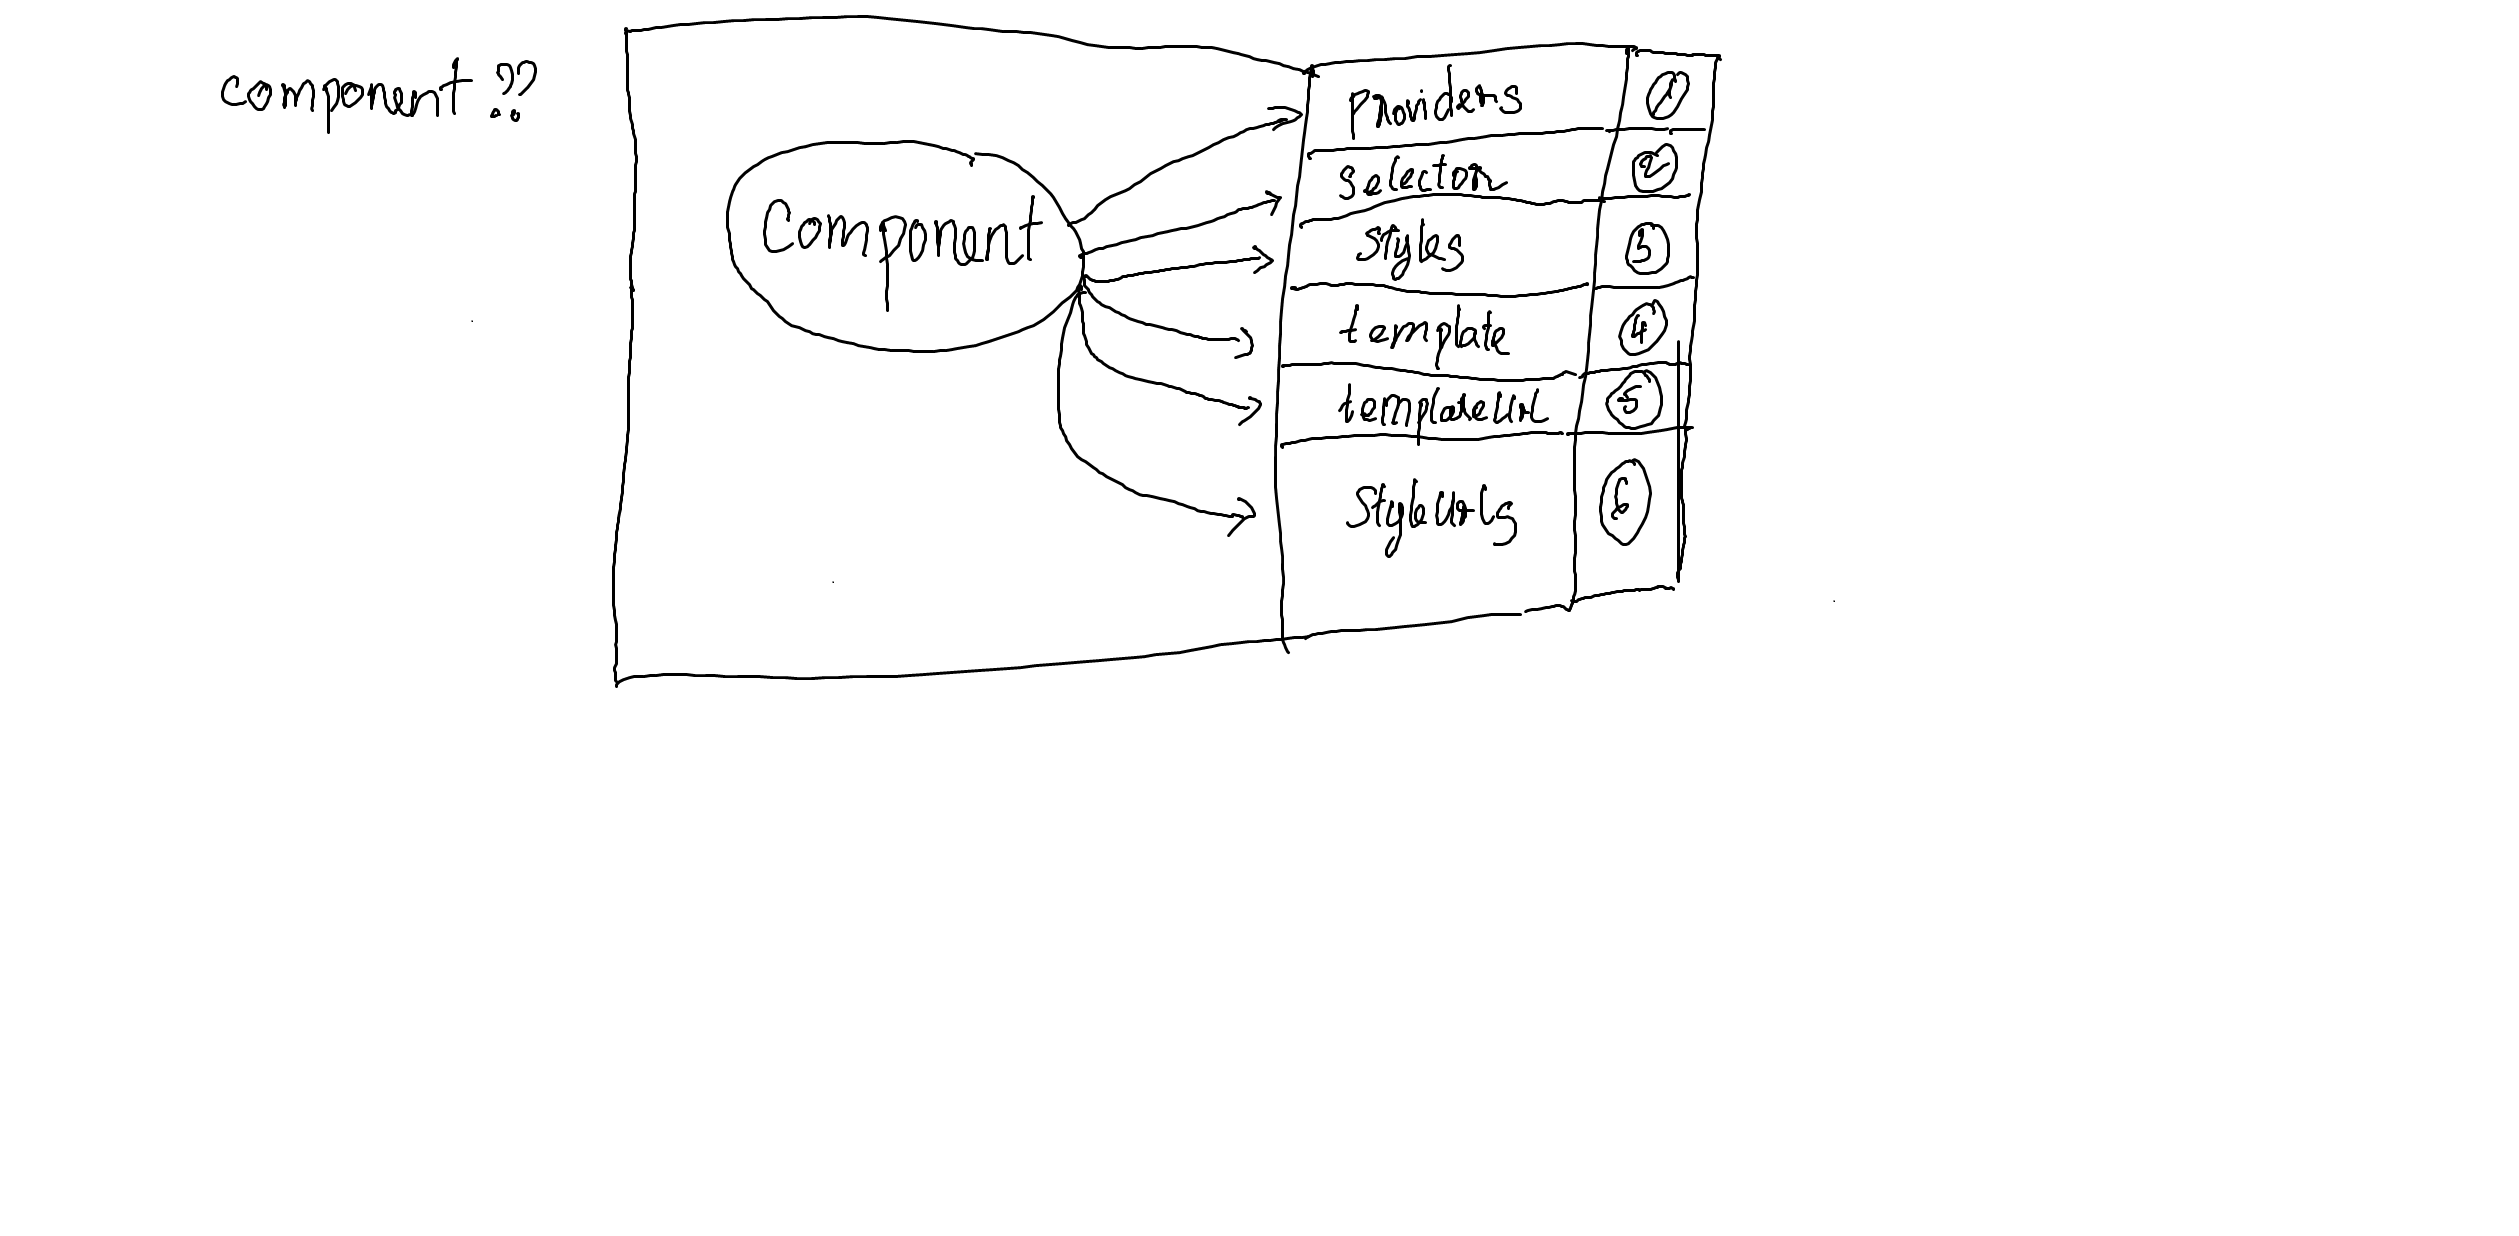 component ??
Component
Providers 1
Selectors 2
Styles 3
template 4
templateUrl 5
StyleUrls 6